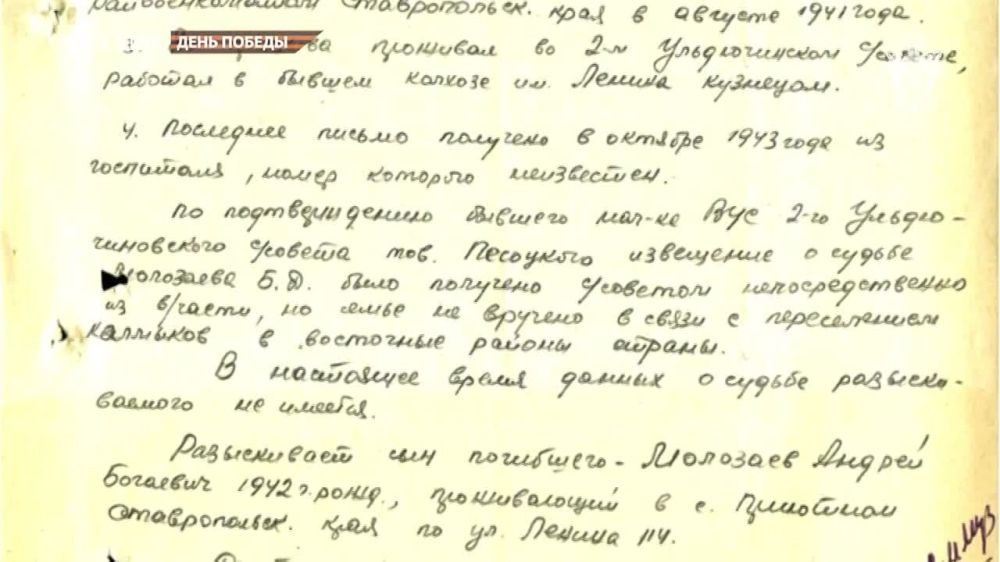 райвоенкоматом Ставропольск. края в августе 1941 года.
ДЕНЬ ПОБЕДЫ
3. проживал во 2-м Ульдючинском с/совете,
работал в бывшем колхозе им. Ленина кузнецом.
4. Последнее письмо получено в октябре 1943 года из
госпиталя, номер которого неизвестен.
По подтверждению бывшего нач-ка ВУС 2-го Ульдю-
чиновского с/совета тов. Песоцкого извещение о судьбе
Молозаева Б.Д. было получено с/советом непосредственно
из в/части, но семье не вручено в связи с переселением
калмыков в восточные районы страны.
В настоящее время данных о судьбе разыски-
ваемого не имеется.
Разыскивает сын погибшего - Молозаев Андрей
Богаевич 1942 г. рожд., проживающий в с.
Ставропольск. края по ул. Ленина 114.